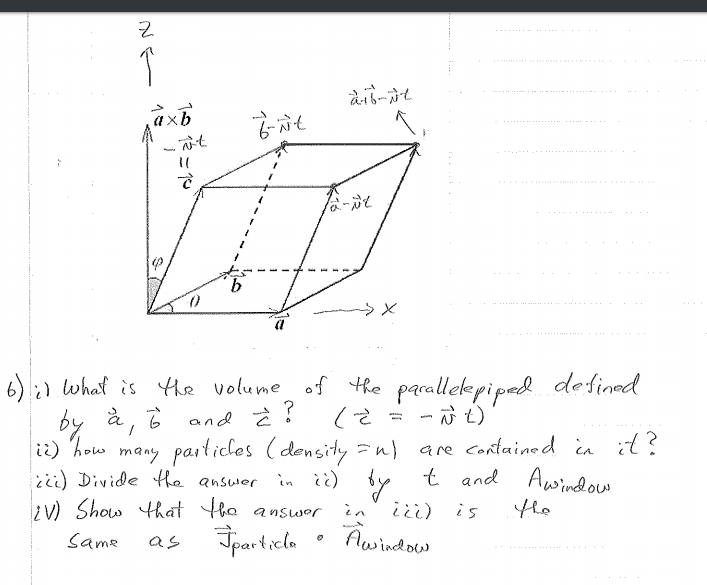 Z
a⃗×b⃗
-v⃗t
=
c⃗
b⃗-v⃗t
a⃗+b⃗-v⃗t
a⃗-v⃗t
φ
θ
b⃗
a⃗
→ X
6) i) What is the volume of the parallelepiped defined
by a⃗, b⃗ and c⃗? (c⃗ = -v⃗t)
ii) how many particles (density = n) are contained in it?
iii) Divide the answer in ii) by t and Awindow
iv) Show that the answer in iii) is the
same as J⃗particle • A⃗window